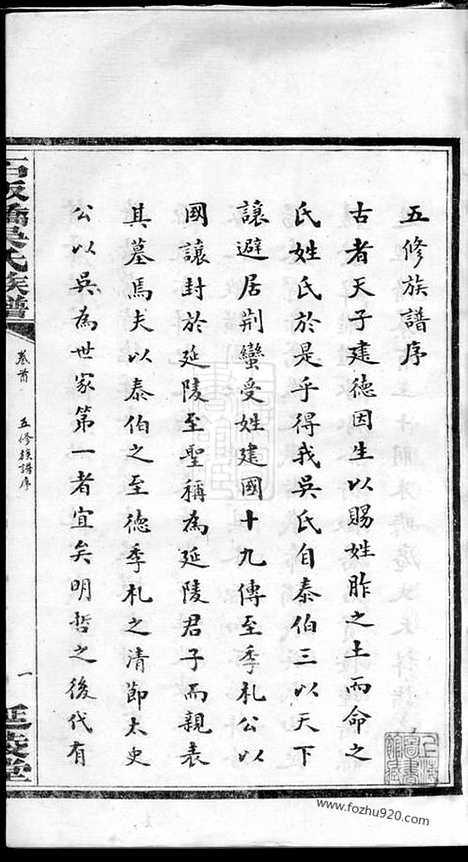 五修族譜序
古者天子建德因生以賜姓胙之土而命之
氏姓氏於是乎得我吳氏自泰伯三以天下
讓避居荆蠻受姓建國十九傳至季札公以
國讓封於延陵至聖稱為延陵君子而親表
其墓焉夫以泰伯之至德季札之清節太史
公以吳為世家第一者宜矣明哲之後代有
石板橋吳氏族譜
卷首
五修族譜序
一
延陵堂
www.fozhu920.com